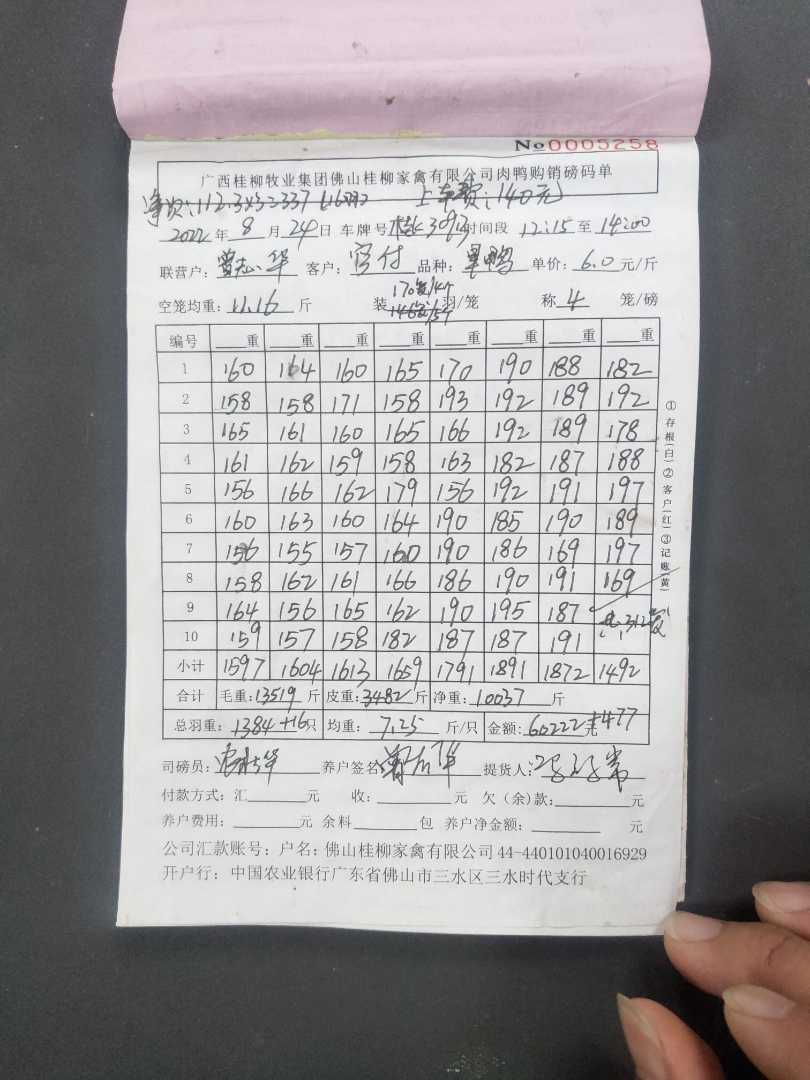 No0005258
广西桂柳牧业集团佛山桂柳家禽有限公司肉鸭购销磅码单
112.3×3=337 上车费:140元
2022年8月24日 车牌号 3093 时间段 12:15至14:00
联营户: 曾志华 客户: 官付 品种: 单价: 6.0元/斤
空笼均重: 11.16斤 装 羽/笼 称4笼/磅
编号 重 重 重 重 重 重 重 重
1 160 164 160 165 170 190 188 182
2 158 158 171 158 193 192 189 192
3 165 161 160 165 166 192 189 178
4 161 162 159 158 163 182 187 188
5 156 166 162 179 156 192 191 197
6 160 163 160 164 190 185 190 189
7 156 155 157 160 190 186 169 197
8 158 162 161 166 186 190 191 169
9 164 156 165 162 190 195 187 共312
10 159 157 158 182 187 187 191
小计 1597 1604 1613 1659 1791 1891 1872 1492
合计 毛重:13519斤 皮重:3482斤 净重:10037斤
总羽重:1384+16只 均重:7.25斤/只 金额:60222元+477
司磅员: 养户签名: 提货人:
付款方式:汇 元 收: 元 欠(余)款: 元
养户费用: 元 余料 包 养户净金额: 元
公司汇款账号:户名:佛山桂柳家禽有限公司 44-440101040016929
开户行:中国农业银行广东省佛山市三水区三水时代支行
①存根(白)②客户(红)③记账(黄)